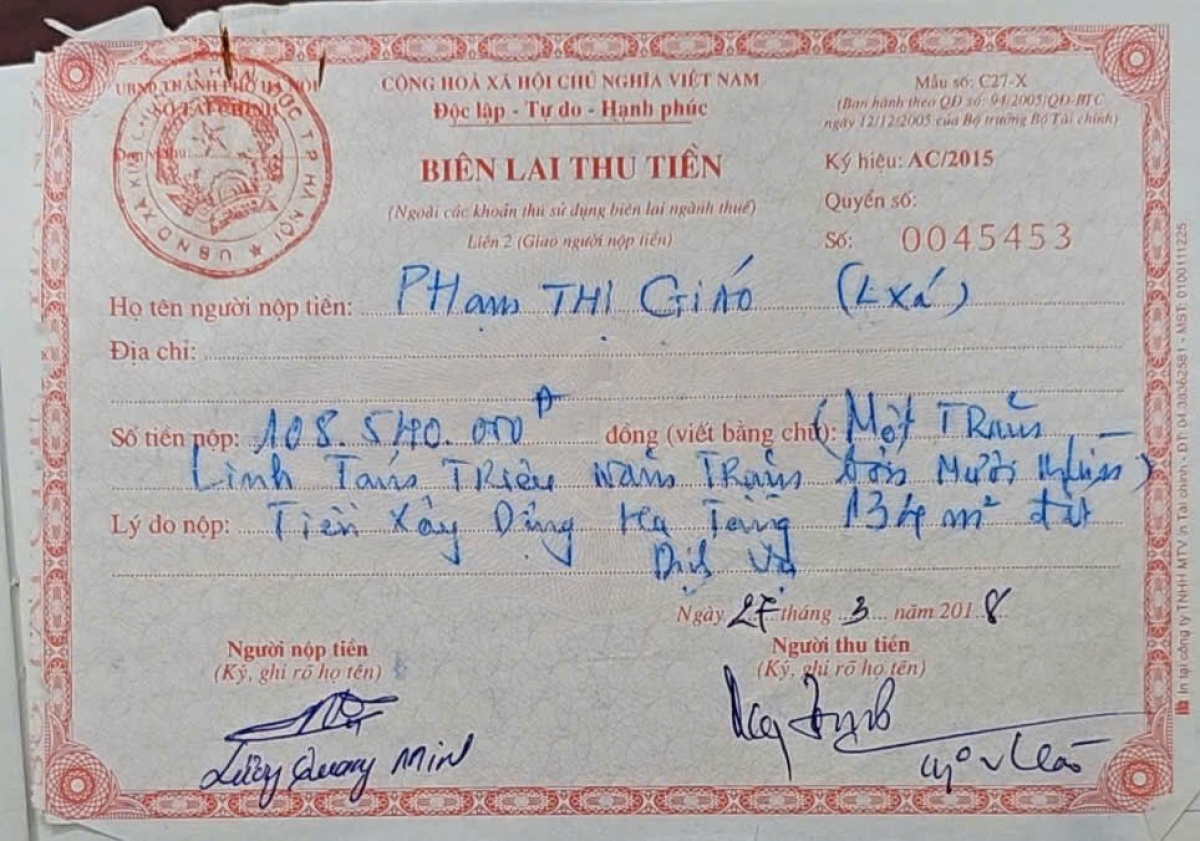 UBND THÀNH PHỐ HÀ NỘI
SỞ TÀI CHÍNH
UBND XÃ KIM CHUNG
T.P HÀ NỘI
CỘNG HOÀ XÃ HỘI CHỦ NGHĨA VIỆT NAM
Độc lập - Tự do - Hạnh phúc
Mẫu số: C27-X
(Ban hành theo QĐ số: 94/2005/QĐ-BTC
ngày 12/12/2005 của Bộ trưởng Bộ Tài chính)
BIÊN LAI THU TIỀN
(Ngoài các khoản thu sử dụng biên lai ngành thuế)
Liên 2 (Giao người nộp tiền)
Ký hiệu: AC/2015
Quyển số:
Số: 0045453
Họ tên người nộp tiền: PHạm THị GIÁO (L Xá)
Địa chỉ:
Số tiền nộp: 108.540.000đ đồng (viết bằng chữ): (Một TRăm
Linh Tám TRiệu Năm TRăm bốn Mươi nghìn)
Lý do nộp: Tiền Xây Dựng Hạ Tầng 134 m² đất
Dịch Vụ
Ngày 27 tháng 3 năm 2018
Người nộp tiền
(Ký, ghi rõ họ tên)
Người thu tiền
(Ký, ghi rõ họ tên)
Quang Min
In tại công ty TNHH MTV n Tài chính - ĐT: 04.38362581 - MST: 0100111225